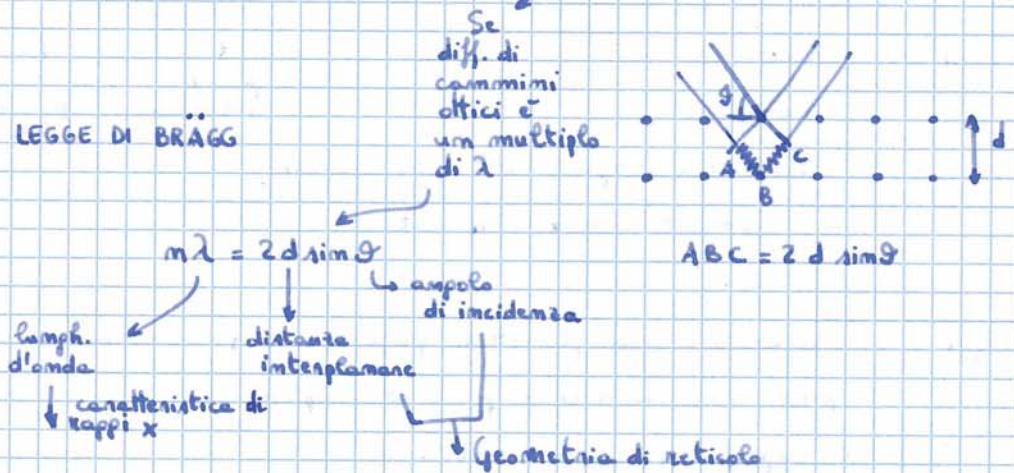 Se
diff. di
cammini
ottici è
un multiplo
di λ
LEGGE DI BRÄGG
nλ = 2d sinϑ
angolo
di incidenza
lungh.
d'onda
distanza
interplanare
caratteristica di
raggi x
Geometria di reticolo
ϑ
d
A
C
B
ABC = 2 d sinϑ